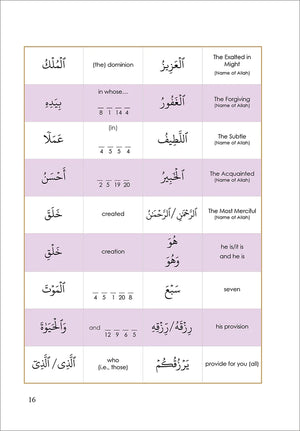 ٱلْمُلْكُ (the) dominion ٱلْعَزِيزُ The Exalted in Might (Name of Allah)
بِيَدِهِ in whose.... 8 1 14 4 ٱلْغَفُورُ The Forgiving (Name of Allah)
عَمَلًا (in) 4 5 5 4 ٱللَّطِيفُ The Subtle (Name of Allah)
أَحْسَنُ 2 5 19 20 ٱلْخَبِيرُ The Acquainted (Name of Allah)
خَلَقَ created ٱلرَّحْمَٰنِ/ٱلرَّحْمَٰنُ The Most Merciful (Name of Allah)
خَلْقِ creation هُوَ وَهُوَ he is/it is and he is
ٱلْمَوْتَ 4 5 1 20 8 سَبْعَ seven
وَٱلْحَيَوٰةَ and 12 9 6 5 رِزْقَهُ/رِّزْقِهِ his provision
ٱلَّذِى/ٱلَّذِىٓ who (i.e., those) يَرْزُقُكُمْ provide for you (all)
16